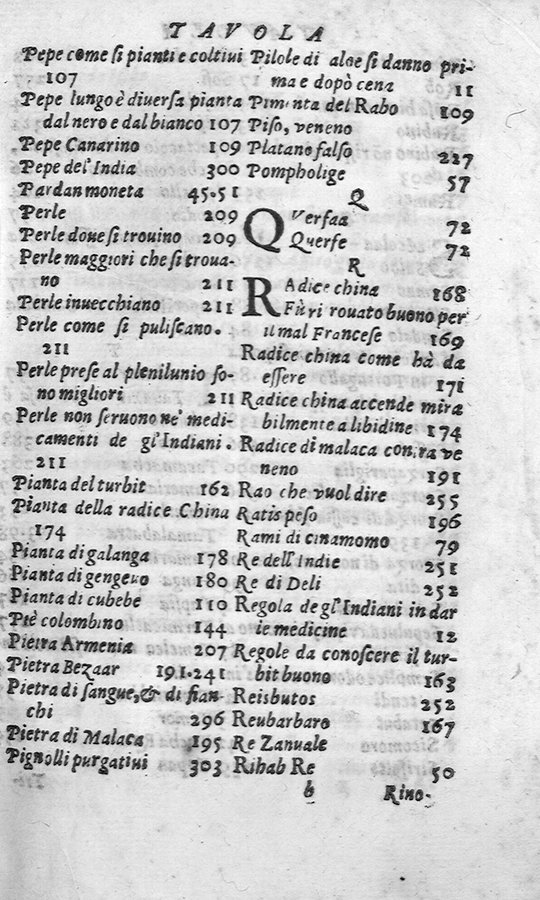 TAVOLA
Pepe come si pianti e coltiui
107
Pepe lungo è diuersa pianta
dal nero e dal bianco 107
Pepe Canarino 109
Pepe del'India 300
Pardan moneta 45.51
Perle 209
Perle doue si trouino 209
Perle maggiori che si troua-
no 211
Perle inuecchiano 211
Perle come si puliscano.
211
Perle prese al plenilunio so-
no migliori 211
Perle non seruono ne' medi-
camenti de gl'Indiani.
211
Pianta del turbit 162
Pianta della radice China
174
Pianta di galanga 178
Pianta di gengeuo 180
Pianta di cubebe 110
Piè colombino 144
Pietra Armenia 207
Pietra Bezaar 191.241
Pietra di sangue, & di fian
chi 296
Pietra di Malaca 195
Pignolli purgatiui 303
Pilole di aloe si danno pri-
ma e dopò cena 11
Pimenta del Rabo 109
Piso, veneno
Platano falso 227
Pompholige 57
Q
QVerfaa 72
Querfe 72
R
RAdice china 168
Fù ri rouato buono per
il mal Francese 169
Radice china come hà da
essere 171
Radice china accende mira
bilmente a libidine 174
Radice di malaca contra ve
neno 191
Rao che vuol dire 255
Ratis peso 196
Rami di cinamomo 79
Re dell'Indie 251
Re di Deli 252
Regola de gl'Indiani in dar
le medicine 12
Regole da conoscere il tur-
bit buono 163
Reisbutos 252
Reubarbaro 167
Re Zanuale
Rihab Re 50
b Rino-